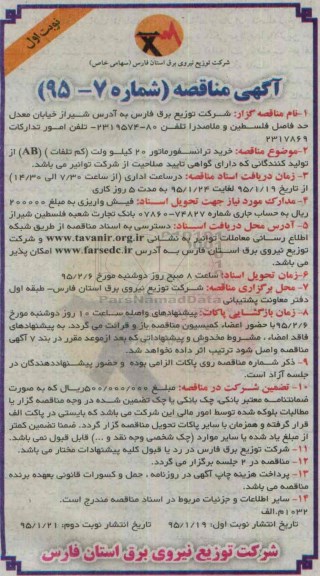 نوبت اول
شرکت توزیع نیروی برق استان فارس (سهامی خاص)
آگهی مناقصه (شماره ۷- ۹۵)
۱-نام مناقصه گزار: شرکت توزیع برق فارس به آدرس شیراز خیابان معدل
حد فاصل فلسطین و ملاصدرا تلفن ۸۰-۲۳۱۹۵۷۴- تلفن امور تدارکات
۲۳۱۷۸۶۹
۲-موضوع مناقصه: خرید ترانسفورماتور ۲۰ کیلو ولت (کم تلفات) (AB) از
تولید کنندگانی که دارای گواهی تایید صلاحیت از شرکت توانیر می باشد.
۳- زمان دریافت اسناد مناقصه: درساعت اداری (از ساعت ۷/۳۰ الی ۱۴/۳۰)
از تاریخ ۹۵/۱/۱۹ لغایت ۹۵/۱/۲۴ به مدت ۵ روز کاری
۴- مدارک مورد نیاز جهت تحویل اسناد: فیش واریزی به مبلغ ۲۰۰۰۰۰
ریال به حساب جاری شماره ۰۷۸۶۰-۷۴۸۲۷ بانک تجارت شعبه فلسطین شیراز
۵- آدرس محل دریافت اسناد: دسترسی به اسناد مناقصه از طریق شبکه
اطلاع رسانی معاملات توانیر به نشانی www.tavanir.org.ir و شرکت
توزیع نیروی برق استان فارس به آدرس www.farsedc.ir امکان پذیر
می باشد.
۶-زمان تحویل اسناد: ساعت ۸ صبح روز دوشنبه مورخ ۹۵/۲/۶
۷- محل برگزاری مناقصه: شرکت توزیع نیروی برق استان فارس- طبقه اول
دفتر معاونت پشتیبانی
۸- زمان بازگشایی پاکات: پیشنهادهای واصله ساعت ۱۰ روز دوشنبه مورخ
۹۵/۲/۶با حضور اعضاء کمیسیون مناقصه باز و قرائت می گردد. به پیشنهادهای
فاقد امضاء، مشروط مخدوش و پیشنهاداتی که بعد ازموعد مقرر در بند ۷ آگهی
مناقصه واصل شود ترتیب اثر داده نخواهد شد.
۹- ذکر شماره مناقصه روی پاکات الزامی بوده و حضور پیشنهاددهندگان در
جلسه آزاد است.
۱۰- تضمین شرکت در مناقصه: مبلغ ۵۰۰/۰۰۰/۰۰۰ریال که به صورت
ضمانتنامه معتبر بانکی، چک بانکی یا چک تضمین شده در وجه مناقصه گزار یا
مطالبات بلوکه شده توسط امور مالی این شرکت می باشد که بایستی در پاکت الف
قرار گرفته و همزمان با سایر پاکات تحویل مناقصه گزار گردد. ضمنا تضمین کمتر
از مبلغ یاد شده یا سایر موارد (چک شخصی وجه نقد و ...) قابل قبول نمی باشد.
۱۱- شرکت توزیع برق فارس در رد یا قبول کلیه پیشنهادات مختار می باشد.
۱۲- مناقصه در ۲ جلسه برگزار می گردد.
۱۳- پرداخت هزینه چاپ آگهی در روزنامه ، حمل و کسورات قانونی بعهده برنده
مناقصه می باشد.
۱۴- سایر اطلاعات و جزئیات مربوط در اسناد مناقصه مندرج است.
۱۰۳۲/م.الف
تاریخ انتشار نوبت اول: ۹۵/۱/۱۹ تاریخ انتشار نوبت دوم: ۹۵/۱/۲۱
شرکت توزیع نیروی برق استان فارس